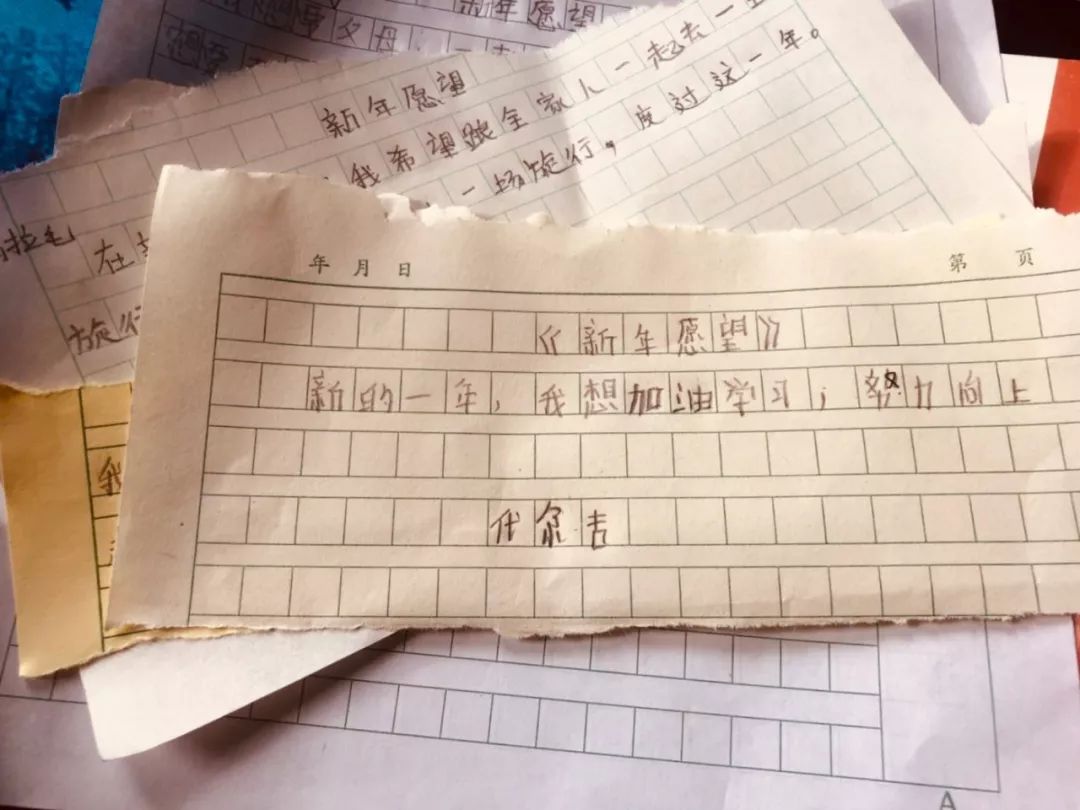 父母
新年愿望
新年愿望
我希望跟全家人一起去一
一场旅行，度过这一年。
拉毛
在
旅行
我
年 月 日 第 页
《新年愿望》
新的一年，我想加油学习；努力向上
代尔吉
A